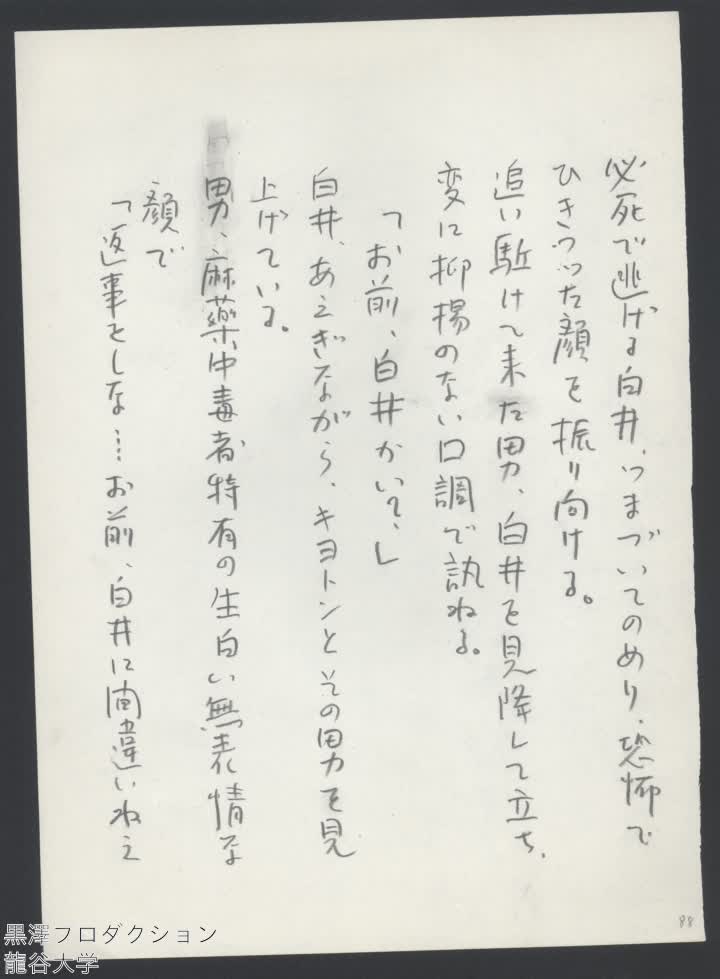 必死で逃げる白井、つまづいてのめり、恐怖で
ひきつった顔を振り向ける。
追い駈けて来た男、白井を見降して立ち、
変に抑揚のない口調で訊ねる。
「お前、白井かい？、」
白井、あえぎながら、キヨトンとその男を見
上げている。
男、麻薬中毒者特有の生白い無表情な
顔で
「返事をしな…お前、白井に間違いねえ
88
黒澤プロダクション
龍谷大学